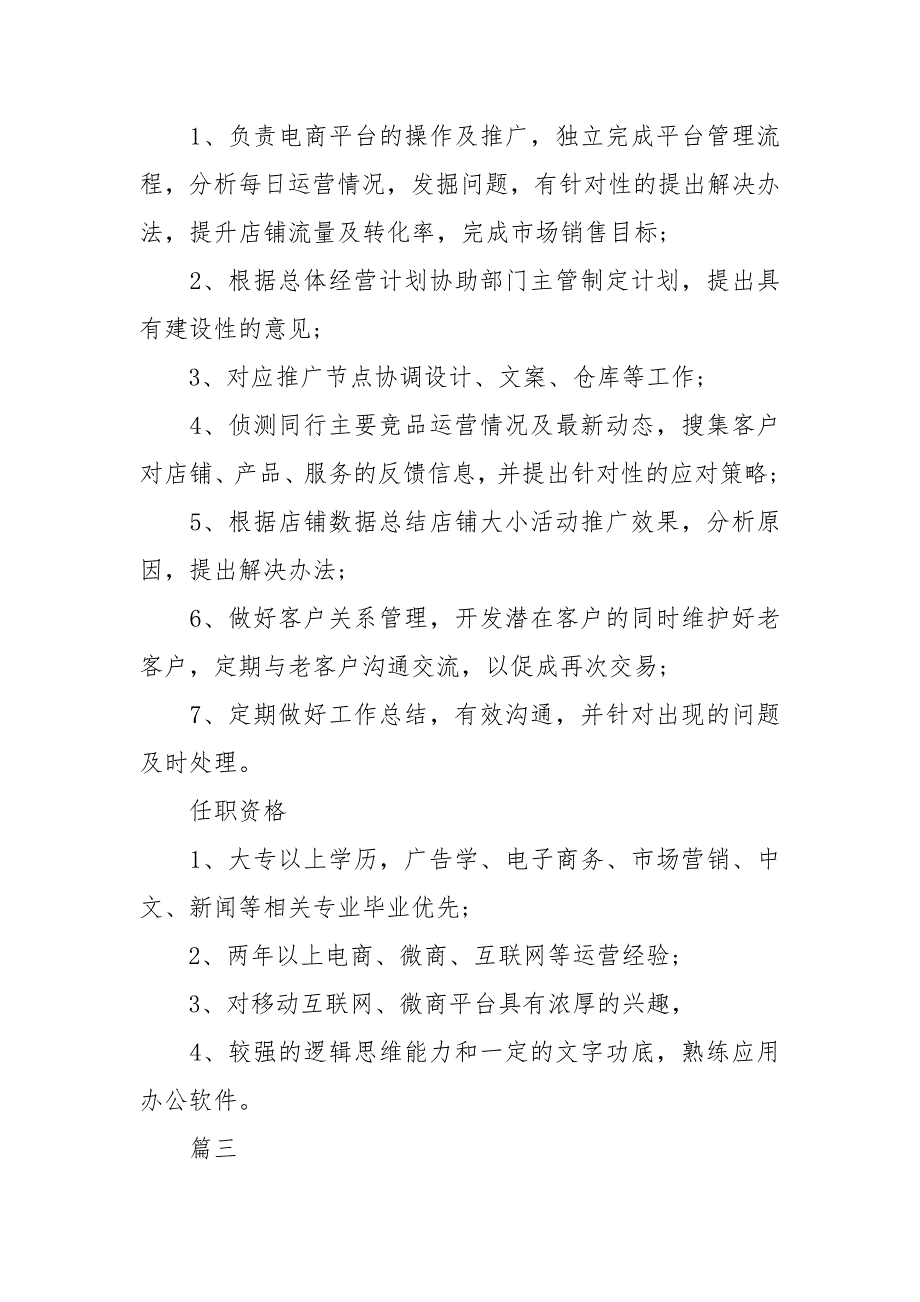 1、负责电商平台的操作及推广，独立完成平台管理流
程，分析每日运营情况，发掘问题，有针对性的提出解决办
法，提升店铺流量及转化率，完成市场销售目标;
2、根据总体经营计划协助部门主管制定计划，提出具
有建设性的意见;
3、对应推广节点协调设计、文案、仓库等工作;
4、侦测同行主要竞品运营情况及最新动态，搜集客户
对店铺、产品、服务的反馈信息，并提出针对性的应对策略;
5、根据店铺数据总结店铺大小活动推广效果，分析原
因，提出解决办法;
6、做好客户关系管理，开发潜在客户的同时维护好老
客户，定期与老客户沟通交流，以促成再次交易;
7、定期做好工作总结，有效沟通，并针对出现的问题
及时处理。
任职资格
1、大专以上学历，广告学、电子商务、市场营销、中
文、新闻等相关专业毕业优先;
2、两年以上电商、微商、互联网等运营经验;
3、对移动互联网、微商平台具有浓厚的兴趣，
4、较强的逻辑思维能力和一定的文字功底，熟练应用
办公软件。
篇三